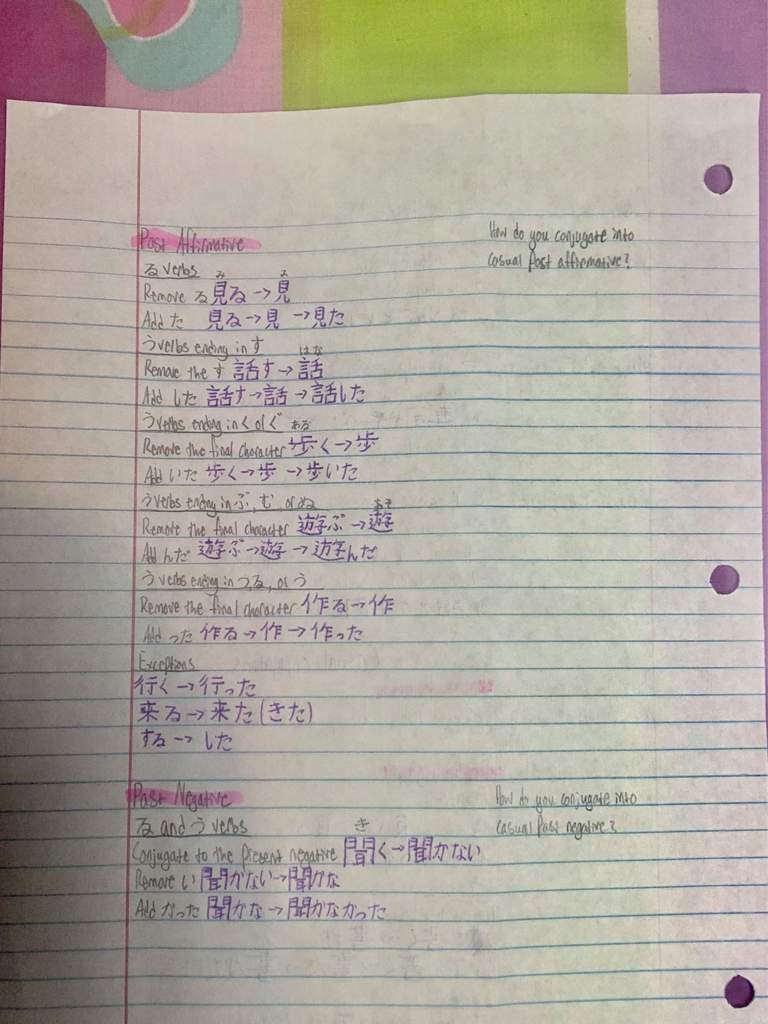 Past Affirmative
How do you conjugate into
casual past affirmative?
る verbs
み み
Remove る 見る→見
Add た 見る→見→見た
う verbs ending in す はな
Remove the す 話す→話
Add した 話す→話→話した
う verbs ending in く or ぐ ある
Remove the final character 歩く→歩
Add いた 歩く→歩→歩いた
う verbs ending in ぶ, む, or ぬ あそ
Remove the final character 遊ぶ→遊
Add んだ 遊ぶ→遊→遊んだ
う verbs ending in つ, る, or う
Remove the final character 作る→作
Add った 作る→作→作った
Exceptions
行く→行った
来る→来た(きた)
する→した
Past Negative
How do you conjugate into
casual past negative?
る and う verbs き
Conjugate to the present negative 聞く→聞かない
Remove い 聞かない→聞かな
Add かった 聞かな→聞かなかった